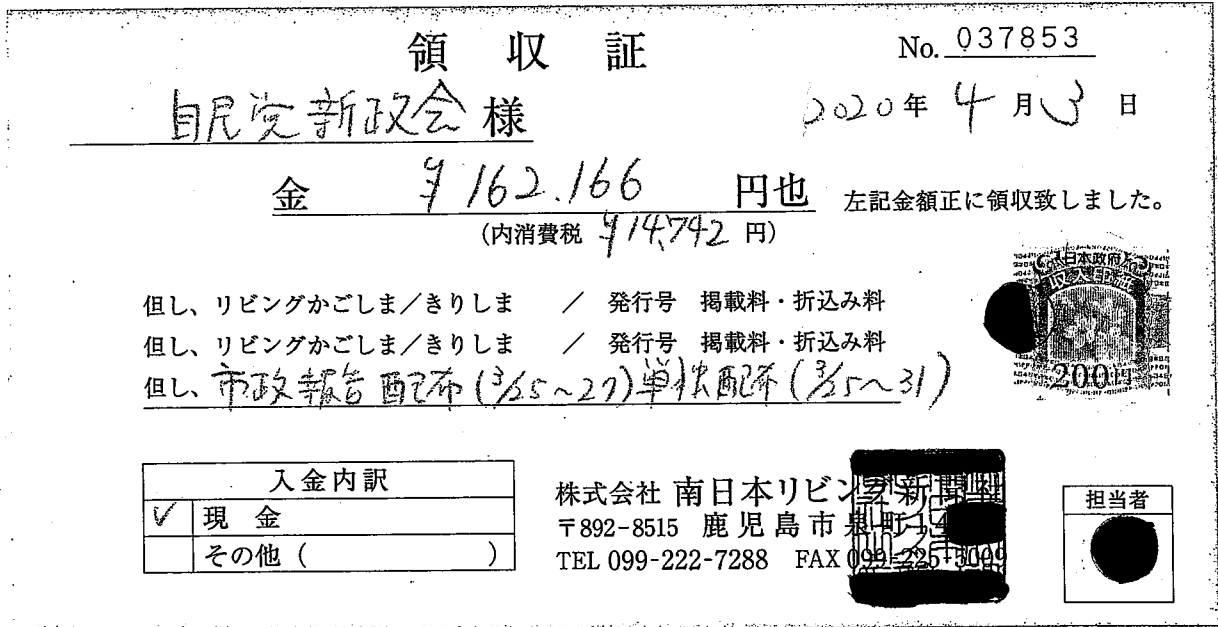 領収証
No. 037853
自民党新政会 様
2020年 4月3日
金 ¥162.166 円也 左記金額正に領収致しました。
(内消費税 ¥14,742 円)
日本政府
収入印紙
200円
但し、リビングかごしま/きりしま / 発行号 掲載料・折込み料
但し、リビングかごしま/きりしま / 発行号 掲載料・折込み料
但し、市政報告配布(3/25~27)単独配布(3/25~31)
入金内訳
✓ 現金
その他( )
株式会社 南日本リビング新聞社
〒892-8515 鹿児島市泉町14
TEL 099-222-7288 FAX 099-225-5009
担当者